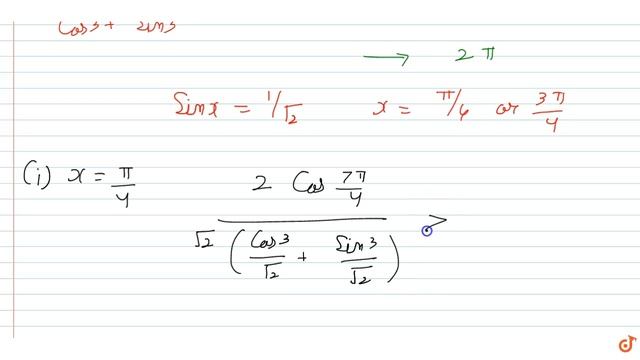 Cos 3 + Sin 3
⟶ 2π
Sin x = 1/√2 x = π/4 or 3π/4
(i) x = π/4 2 Cos 7π/4 / √2 (Cos 3/√2 + Sin 3/√2) >